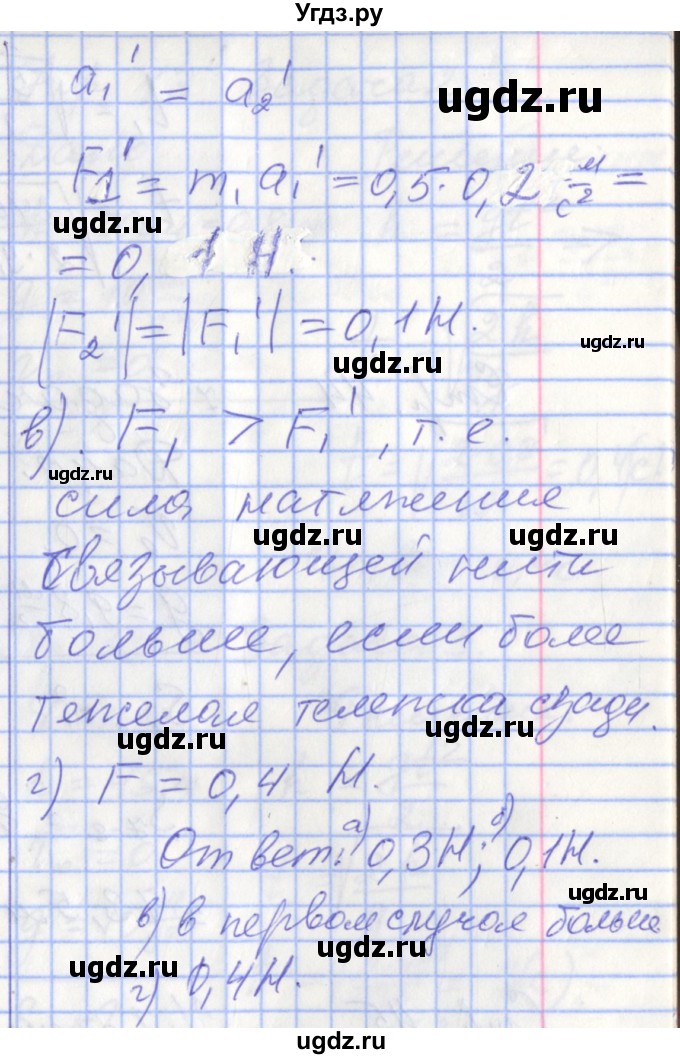 Угдз.ру
a₁' = a₂'
ugdz.ru
F₁' = m₁ a₁' = 0,5 · 0,2 м/с² =
ugdz.ru
= 0, 1 Н.
|F₂'| = |F₁'| = 0,1 Н.
ugdz.ru
ugdz.ru
в). F₁ > F₁', т. е.
ugdz.ru
сила натяжения
ugdz.ru ugdz.ru
связывающей нити
больше, если более
ugdz.ru
тяжелая тележка сзади.
ugdz.ru
ugdz.ru
г) F = 0,4 Н.
Ответ: а) 0,3Н; б) 0,1Н.
ugdz.ru
в) в первом случае больше
ugdz.ru
ugdz.ru
г) 0,4Н.
ugdz.ru